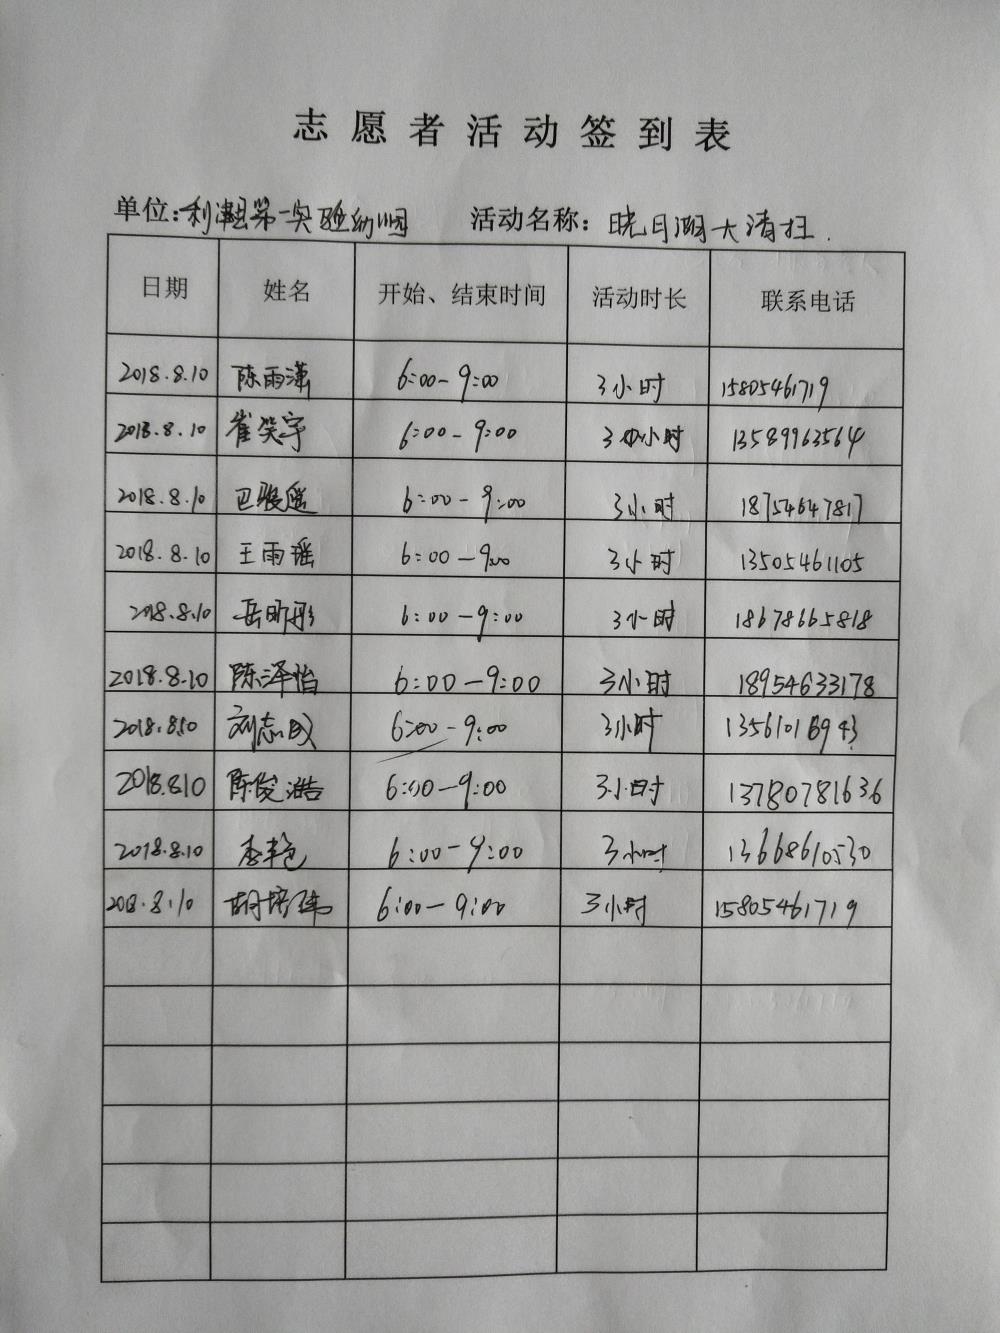 志愿者活动签到表
单位：利津县第一实验幼儿园 活动名称：晓月湖大清扫.
日期 姓名 开始、结束时间 活动时长 联系电话
2018.8.10 陈雨潇 6:00-9:00 3小时 15805461719
2018.8.10 崔笑宇 6:00-9:00 3小时 13589963564
2018.8.10 巴骏遥 6:00-9:00 3小时 18754647817
2018.8.10 王雨瑶 6:00-9:00 3小时 13505461105
2018.8.10 岳昕彤 6:00-9:00 3小时 18678665818
2018.8.10 陈泽怡 6:00-9:00 3小时 18954633178
2018.8.10 刘志 6:00-9:00 3小时
2018.8.10 陈俊浩 6:00-9:00 3小时 13780781636
2018.8.10 6:00-9:00 3小时 13668610530
2018.8.10 胡培 6:00-9:00 3小时 15805461719